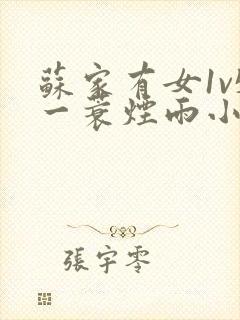 蘇家有女1v
一蓑煙雨小
張宇零